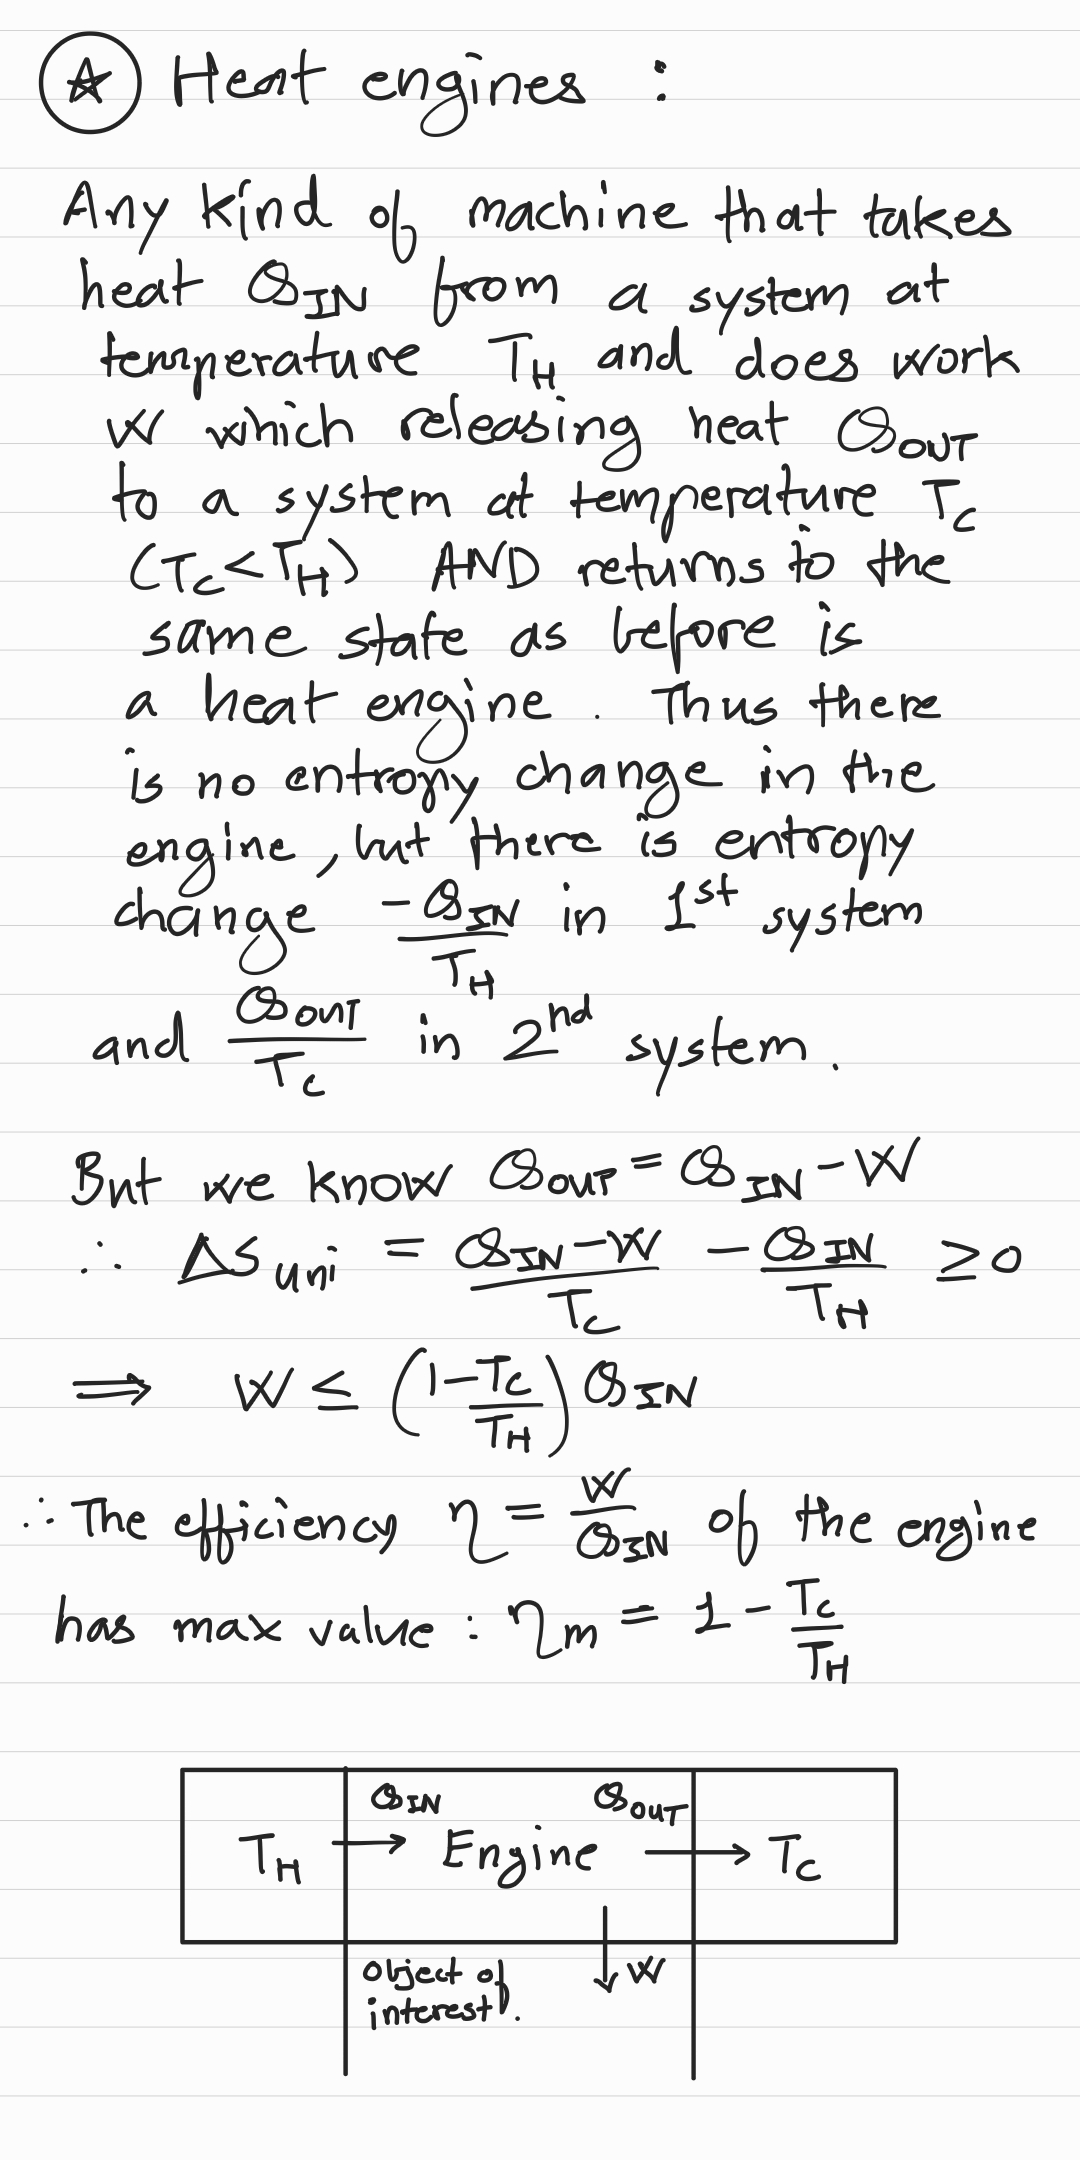 ☆ Heat engines :
Any kind of machine that takes
heat Q_IN from a system at
temperature T_H and does work
W which releasing heat Q_OUT
to a system at temperature T_C
(T_C < T_H) AND returns to the
same state as before is
a heat engine. Thus there
is no entropy change in the
engine, but there is entropy
change -Q_IN/T_H in 1st system
and Q_OUT/T_C in 2nd system.
But we know Q_OUT = Q_IN - W
∴ ΔS_uni = (Q_IN - W)/T_C - Q_IN/T_H ≥ 0
⟹ W ≤ (1 - T_C/T_H) Q_IN
∴ The efficiency η = W/Q_IN of the engine
has max value : η_m = 1 - T_C/T_H
Q_IN Q_OUT
T_H → Engine → T_C
object of
interest.
↓ W